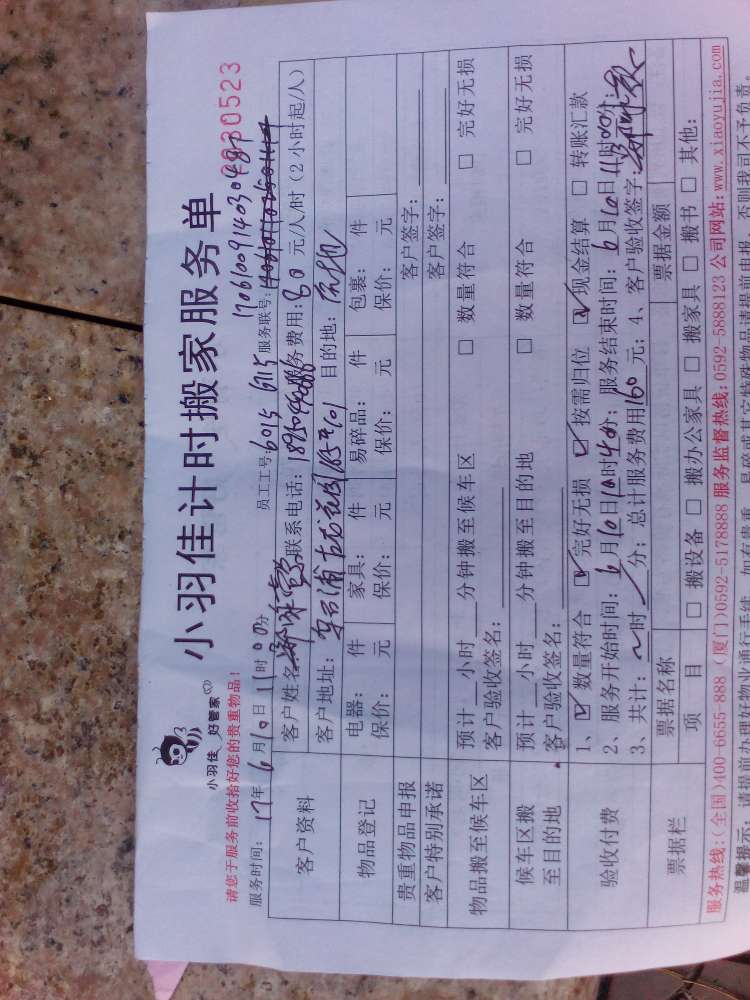 小羽佳 好管家
小羽佳计时搬家服务单
0030523
请您于服务前收拾好您的贵重物品!
服务时间: 17年 6月10日 11时00分 员工工号: 6015 6115 服务联号: 170610091403048
客户资料
客户姓名: 联系电话: 服务费用: 80 元/人/时 (2小时起/人)
客户地址: 目的地:
物品登记
电器: 件 家具: 件 易碎品: 件 包裹: 件
保价: 元 保价: 元 保价: 元 保价: 元
贵重物品申报 客户签字:
客户特别承诺 客户签字:
物品搬至候车区
预计 小时 分钟搬至候车区 □ 数量符合 □ 完好无损
客户验收签名:
候车区搬至目的地
预计 小时 分钟搬至目的地 □ 数量符合 □ 完好无损
客户验收签名:
验收付费
1、☑ 数量符合 ☑ 完好无损 ☑ 按需归位 ☑ 现金结算 □ 转账汇款
2、服务开始时间: 6月10日10时40分; 服务结束时间: 6月10日11时00分;
3、共计: 时 分; 总计服务费用 160 元; 4、客户验收签字:
票据栏
票据名称 票据金额
项 目 □ 搬设备 □ 搬办公家具 □ 搬家具 □ 搬书 □ 其他:
服务热线:(全国)400-6655-888 (厦门)0592-5178888 服务监督热线:0592-5888123 公司网站:www.xiaoyujia.com
温馨提示: 请提前办理好物业通行手续,如有贵重、易碎或其它特殊物品请提前申报,否则我司不予负责